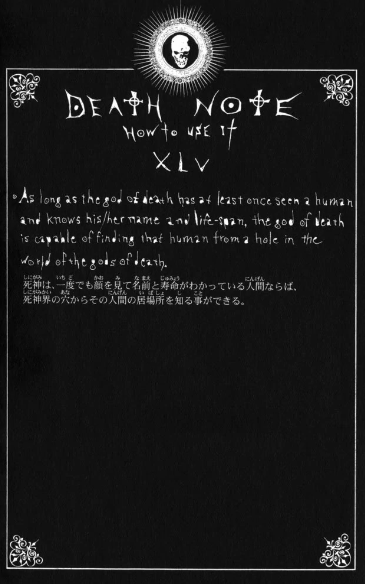 DEATH NOTE
How to USE It
XLV
As long as the god of death has at least once seen a human
and knows his/her name and life-span, the god of death
is capable of finding that human from a hole in the
world of the gods of death.
死神は、一度でも顔を見て名前と寿命がわかっている人間ならば、
死神界の穴からその人間の居場所を知る事ができる。